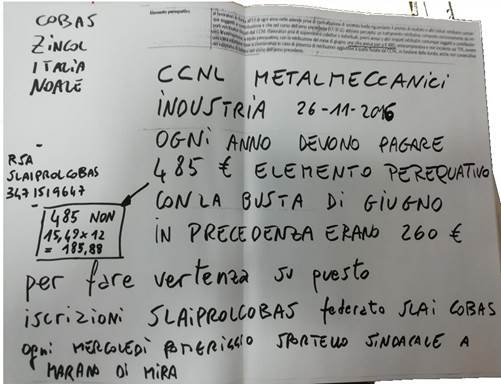 Elemento perequativo
COBAS
ZINCOL
ITALIA
NOALE
CCNL METALMECCANICI
INDUSTRIA 26-11-2016
OGNI ANNO DEVONO PAGARE
485 € ELEMENTO PEREQUATIVO
CON LA BUSTA DI GIUGNO
IN PRECEDENZA ERANO 260 €
RSA
SLAIPROLCOBAS
3471519647
485 NON
15,49 x 12
= 185,88
per fare vertenza su questo
iscrizioni SLAIPROLCOBAS federato SLAI COBAS
ogni MERCOLEDÌ POMERIGGIO SPORTELLO SINDACALE A
MARANO DI MIRA